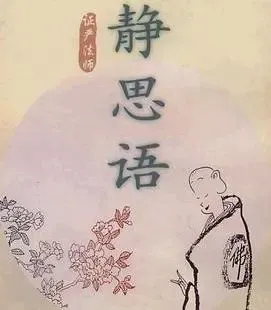 静思语
证严法师
佛